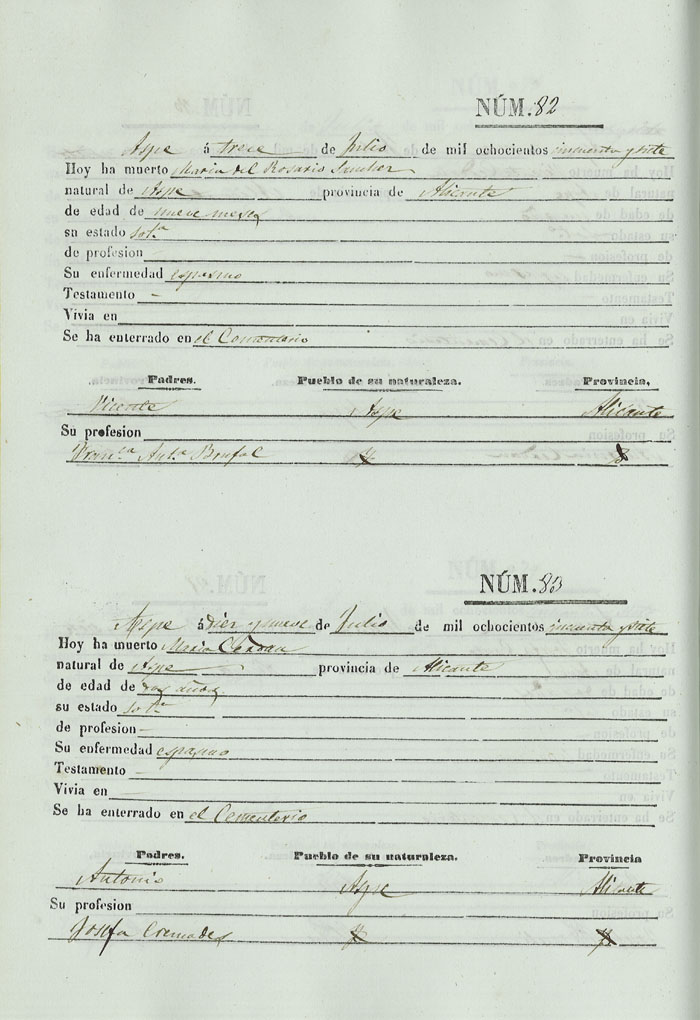 NÚM. 82
Aspe á trece de Julio de mil ochocientos cincuenta y siete
Hoy ha muerto Maria del Rosario Sanchez
natural de Aspe provincia de Alicante
de edad de nueve meses
su estado solª
de profesion
Su enfermedad espasmo
Testamento -
Vivia en
Se ha enterrado en el Cementerio
Padres. Pueblo de su naturaleza. Provincia.
Vicente Aspe Alicante
Su profesion
Franca Anta
NÚM. 83
Aspe á diez y nueve de Julio de mil ochocientos cincuenta y siete
Hoy ha muerto Maria
natural de Aspe provincia de Alicante
de edad de dos años
su estado solª
de profesion -
Su enfermedad espasmo
Testamento -
Vivia en
Se ha enterrado en el Cementerio
Padres. Pueblo de su naturaleza. Provincia
Antonio Aspe Alicante
Su profesion
Josefa Cremades